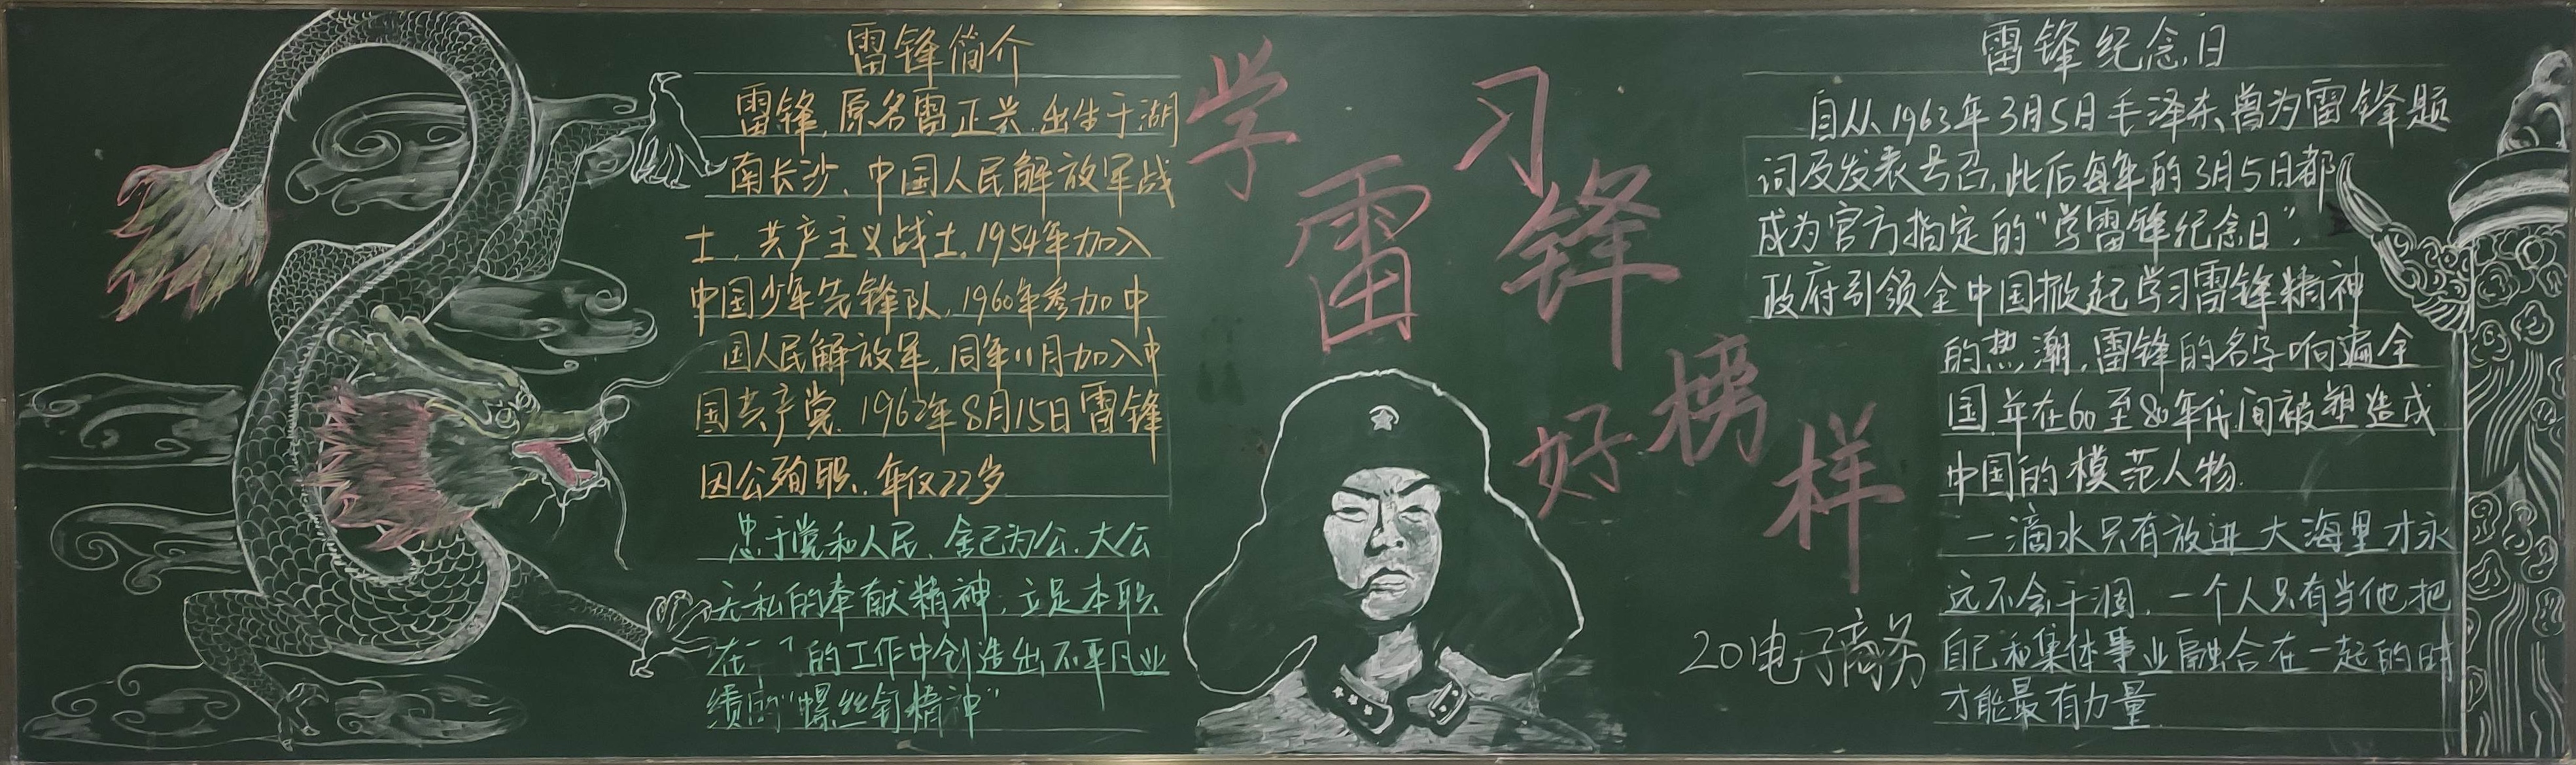 雷锋简介
雷锋,原名雷正兴.出生于湖
南长沙、中国人民解放军战
士,共产主义战士.1954年加入
中国少年先锋队,1960年参加中
国人民解放军,同年11月加入中
国共产党.1962年8月15日雷锋
因公殉职.年仅22岁
忠于党和人民、舍己为公.大公
无私的奉献精神;立足本职
在一 的工作中创造出不平凡业
绩的“螺丝钉精神”
学习
雷锋
好榜样
20电子商务
雷锋纪念日
自从1963年3月5日毛泽东曾为雷锋题
词及发表号召,此后每年的3月5日都
成为官方指定的“学雷锋纪念日”,
政府引领全中国掀起学习雷锋精神
的热潮,雷锋的名字响遍全
国.并在60至80年代间被塑造成
中国的模范人物.
一滴水只有放进大海里才永
远不会干涸,一个人只有当他把
自己和集体事业融合在一起的时
才能最有力量.